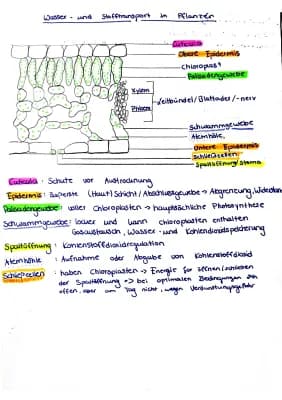 Wasser- und Stofftransport in Pflanzen
Cuticula
Obere Epidermis
Chloroplast
Palisadengewebe
Xylem
Phloem
Leitbündel/Blattader/-nerv
Schwammgewebe
Atemhöhle
Untere Epidermis
Schließzellen
Spaltöffnung/Stoma
Cuticula: Schutz vor Austrocknung
Epidermis: äußerste (Haut)Schicht/Abschlussgewebe → Abgrenzung,
Palisadengewebe: voller Chloroplasten → hauptsächliche Photosynthese
Schwammgewebe: locker und kann Chloroplasten enthalten
Gasaustausch, Wasser- und Kohlendioxidspeicherung
Spaltöffnung: Kohlenstoffdioxidregulation
Atemhöhle: Aufnahme oder Abgabe von Kohlenstoffdioxid
Schließzellen: haben Chloroplasten → Energie für öffnen/schließen
der Spaltöffnung → bei optimalen Bedingungen
offen, aber am Tag nicht, wegen Verdunstungsgefahr